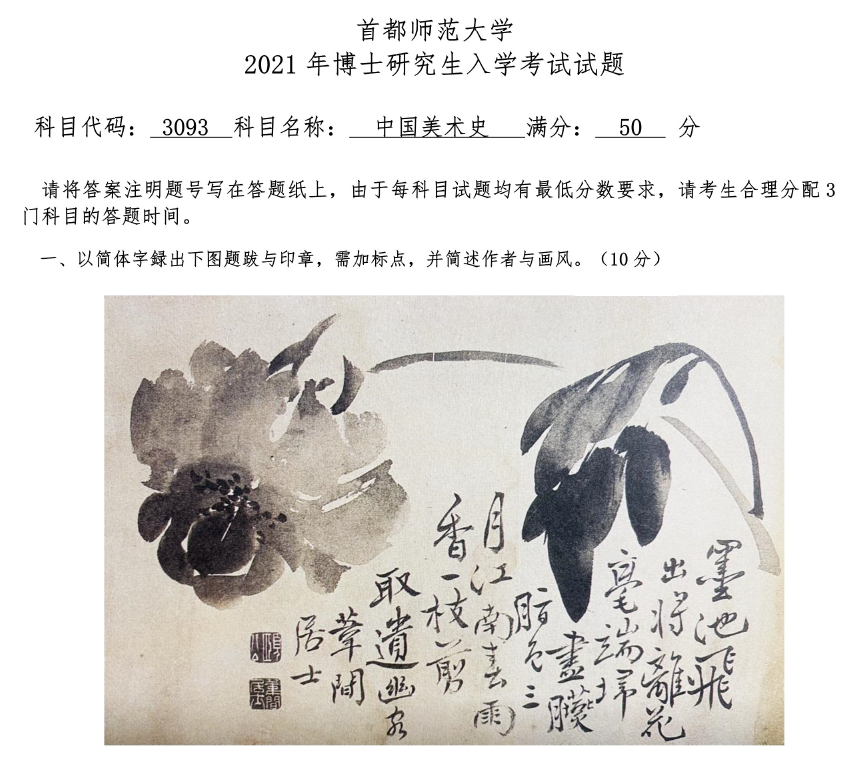 首都师范大学
2021 年博士研究生入学考试试题
科目代码： 3093 科目名称： 中国美术史 满分： 50 分
请将答案注明题号写在答题纸上，由于每科目试题均有最低分数要求，请考生合理分配 3
门科目的答题时间。
一、以简体字録出下图题跋与印章，需加标点，并简述作者与画风。（10 分）
墨池飛
出将離花
毫端掃
盡臙
脂色三
月江南春雨
香一枝剪
取遺幽客
葦間
居士